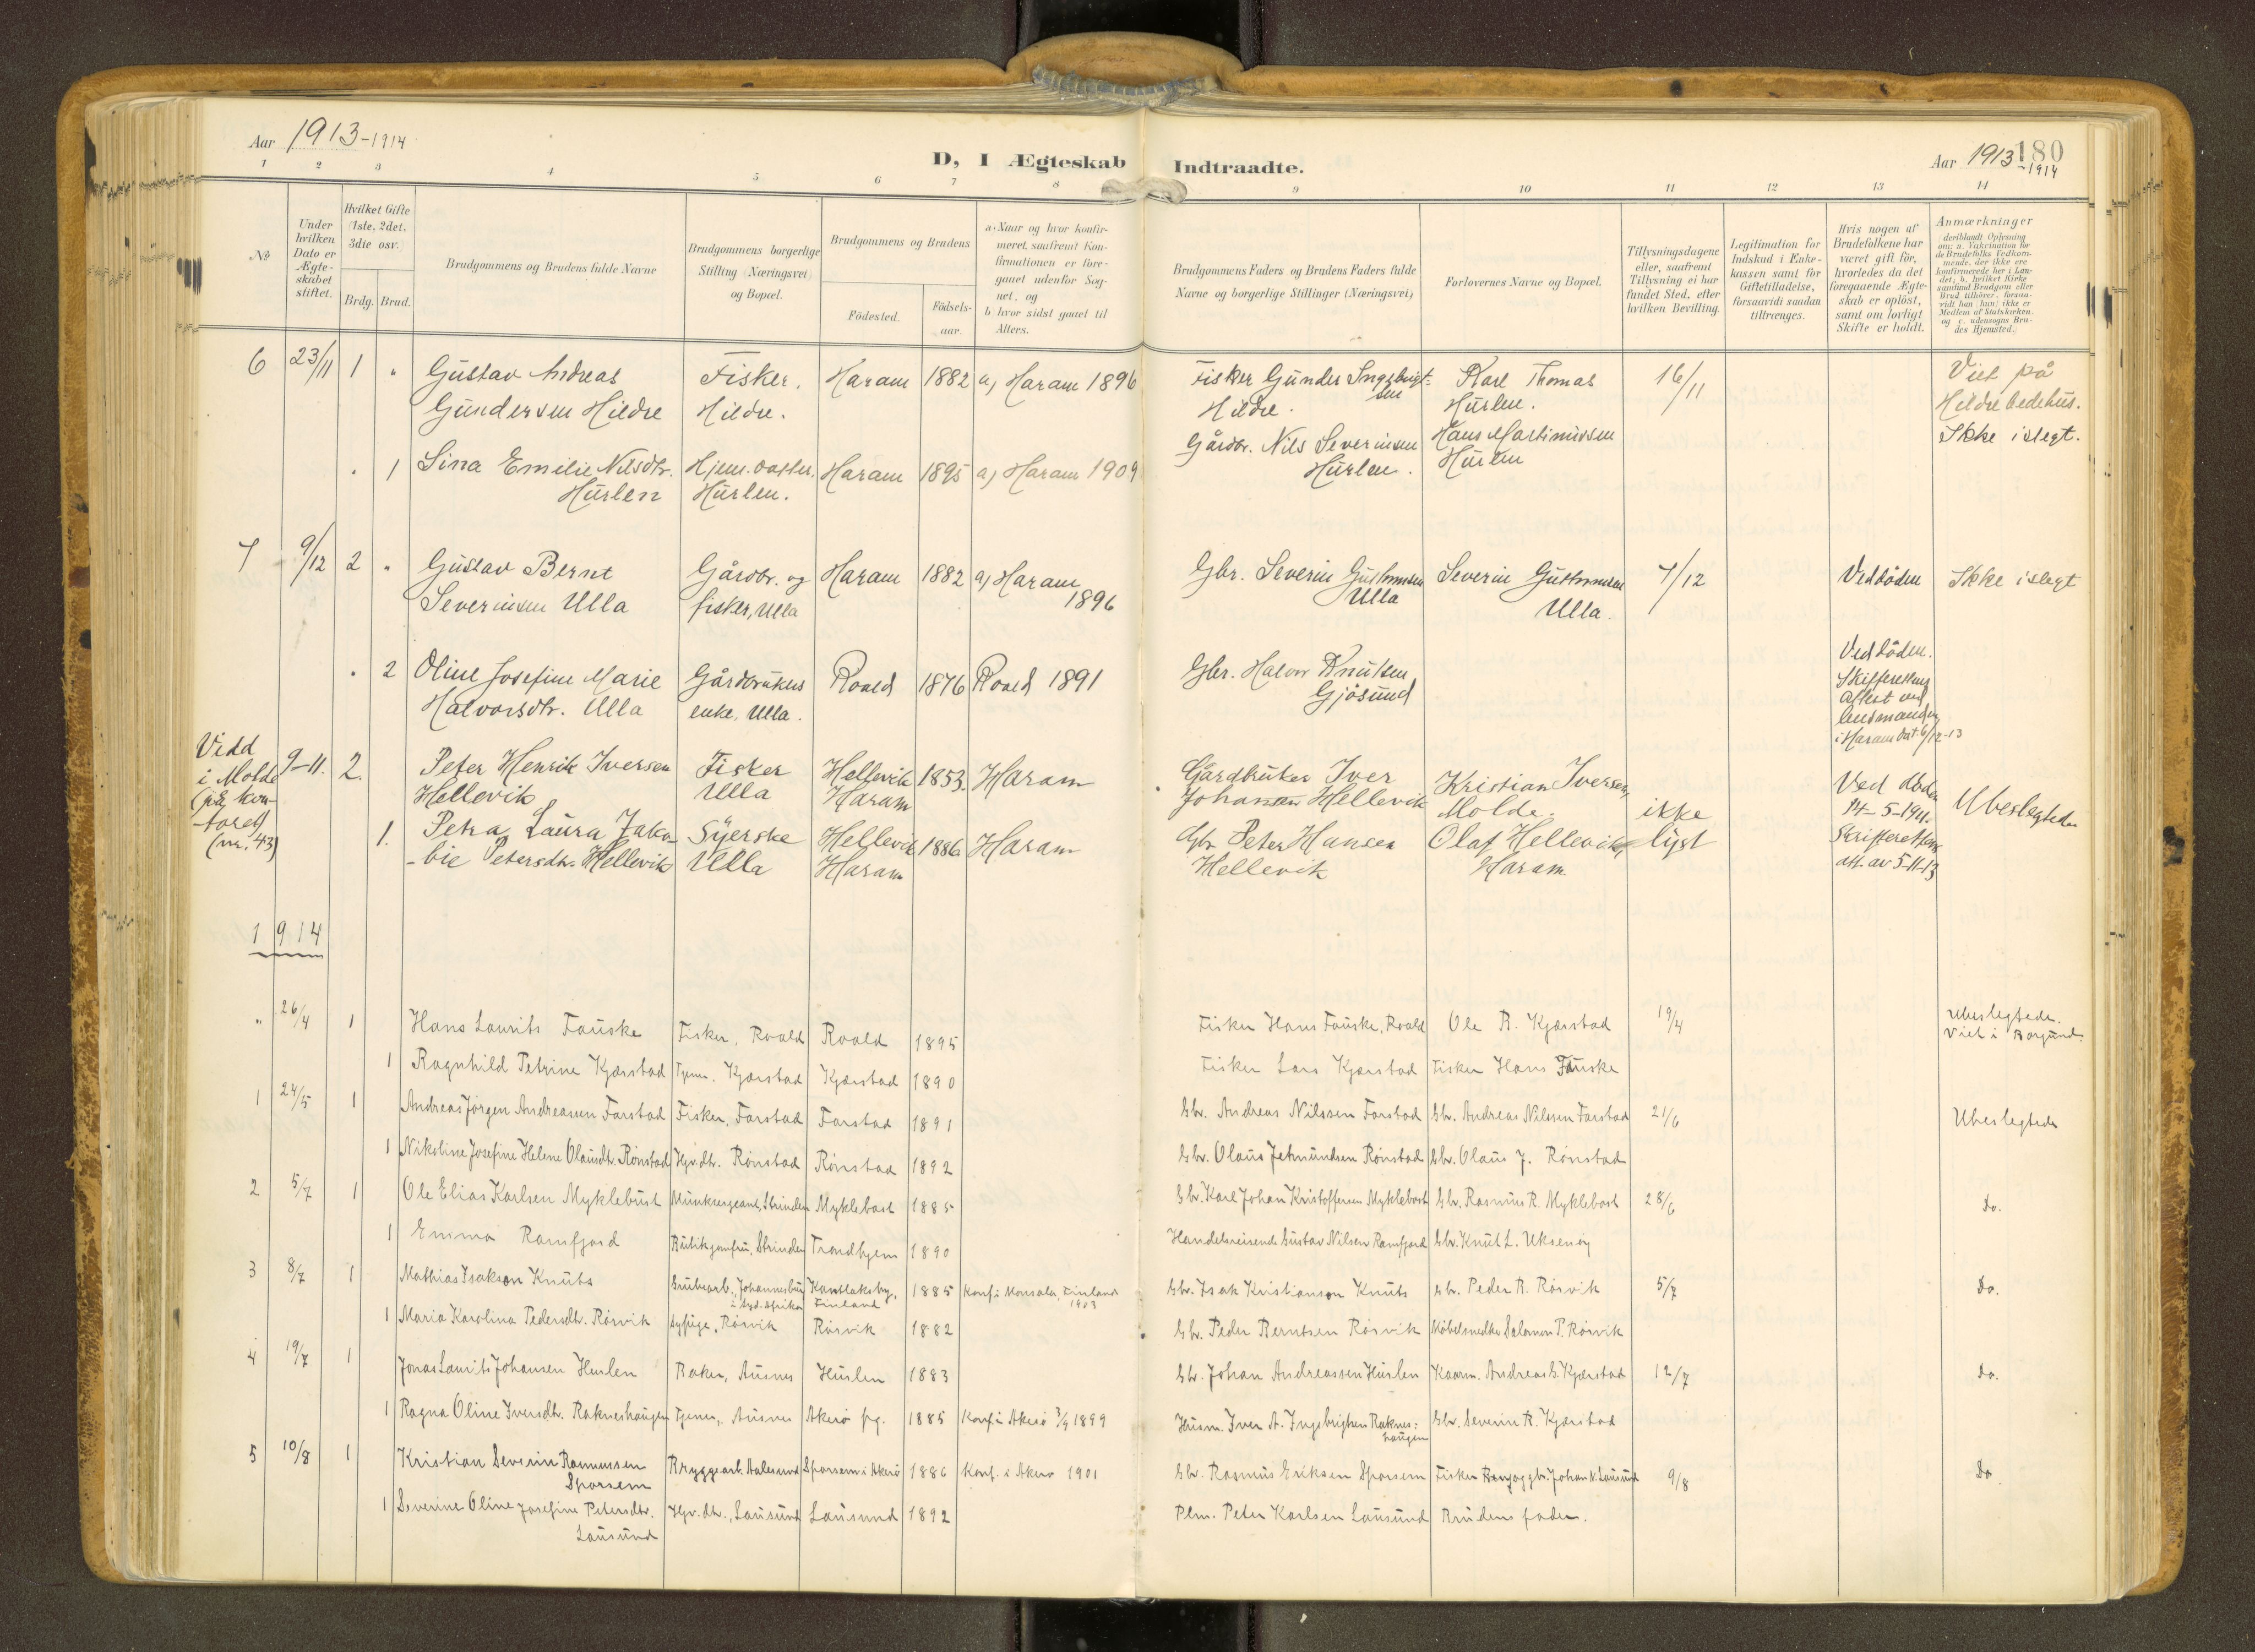 Aar 1913-1914
D, I Ægteskab Indtraadte.
Aar 1913-1914
180
1 2 3 4 5 6 7 8 9 10 11 12 13 14
No
Under hvilken Dato er Ægteskabet stiftet.
Hvilket Gifte (1ste, 2det, 3die osv.
Brdg. Brud.
Brudgommens og Brudens fulde Navne
Brudgommens borgerlige Stilling (Næringsvei) og Bopæl.
Brudgommens og Brudens
Födested.
Födselsaar.
a. Naar og hvor konfirmeret, saafremt Konfirmationen er foregaaet udenfor Sognet, og
b. hvor sidst gaaet til Alters.
Brudgommens Faders og Brudens Faders fulde Navne og borgerlige Stillinger (Næringsvei)
Forlovernes Navne og Bopæl.
Tillysningsdagene eller, saafremt Tillysning ei har fundet Sted, efter hvilken Bevilling.
Legitimation for Indskud i Enkekassen samt for Giftetilladelse, forsaavidt saadan tiltrænges.
Hvis nogen af Brudefolkene har været gift för, hvorledes da det foregaaende Ægteskab er oplöst, samt om lovligt Skifte er holdt.
Anmærkninger
(deriblandt Oplysning om: a. Vakcination for de Brudefolks Vedkommende, der ikke ere konfirmerede her i Landet; b. hvilket Kirkesamfund Brudgom eller Brud tilhörer, forsaavidt han (hun) ikke er Medlem af Statskirken. og c. udensogns Brudes Hjemsted.)
6 23/11 1 " Gustav Andreas Gundersen Hildre Fisker, Hildre. Haram 1882 a) Haram 1896 Fisker Gunder Ingebrigtsen Hildre. Karl Thomas Hurlen. 16/11 Viet på Hildre bedehus. Ikke i slegt.
" 1 Sina Emilie Nilsdtr. Hurlen Hjem. datter. Hurlen. Haram 1895 a) Haram 1909 Gårdbr. Nils Severinsen Hurlen. Hans Martinussen Hurlen
7 9/12 2 " Gustav Bernt Severinsen Ulla Gårdbr. og fisker, Ulla Haram 1882 a) Haram 1896 Gbr. Severin Guttormsen Ulla Severin Guttormsen Ulla. 7/12 Ved döden Ikke i slegt
" 2 Oline Josefine Marie Halvorsdtr. Ulla Gårdbrukers enke, Ulla. Roald 1876 Roald 1891 Gbr. Halvor Knutsen Gjösund Ved döden. Skifterettens attest ved lensmanden i Haram dat 6/12-13
Vidd i Molde (på kontoret) (nr. 43) 9-11. 2. Peter Henrik Iversen Hellevik Fisker Ulla Hellevik Haram 1853. Haram Gårdbruker Iver Johannen Hellevik Kristian Iversen, Molde. ikke lyst Ved döden 14-5-1911. Skifterettens att. av 5-11-13 Ubeslegtede
1. Petra Laura Jakobie Petersdtr. Hellevik Syerske Ulla Hellevik Haram 1886. Haram Gbr. Peter Hansen Hellevik Olaf Hellevik, Haram.
1914
" 26/4 1 Hans Laurits Fauske Fisker, Roald Roald 1895 Fisker Hans Fauske, Roald Ole R. Kjærstad 19/4 Ubeslegtede. Viet i Borgund.
1 Ragnhild Petrine Kjærstad Tjener. Kjærstad Kjærstad 1890 Fisker Lars Kjærstad Fisker Hans Fauske
1 24/5 1 Andreas Jørgen Andreassen Farstad Fisker, Farstad Farstad 1891 Gbr. Andreas Nilssen Farstad Gbr. Andreas Nilssen Farstad 21/6 Ubeslegtede
1 Nikoline Josefine Helene Olausdtr. Rönstad Hjv.dtr. Rönstad Rönstad 1892 Gbr. Olaus Jetmundsen Rönstad Gbr. Olaus J. Rönstad
2 5/7 1 Ole Elias Karlsen Myklebust Munksergeant, Strinden Myklebost 1885 Gbr. Karl Johan Kristoffersen Myklebost Gbr. Rasmus R. Myklebost 28/6 Do.
1 Emma Ramfjord Butikjomfru, Strinden Trondhjem 1890 Handelsreisende Gustav Nilsen Ramfjord Gbr. Knut L. Uksenöy
3 8/7 1 Mathias Isakson Knuts Grubearb., Johannesburg i Syd-Afrika Kantlaksby, Finland 1885 Konf. i Monsala, Finland 1903 Gbr. Isak Kristianson Knuts Gbr. Peder B. Rösvik 5/7 Do.
1 Maria Karolina Pedersdtr. Rösvik Sypige, Rösvik Rösvik 1882 Gbr. Peder Berntsen Rösvik Möbelsnedker Salomon P. Rösvik
4 19/7 1 Jonas Laurits Johansen Hurlen Baker, Ausnes Hurlen 1883 Gbr. Johan Andreassen Hurlen Kaarm. Andreas G. Kjærstad 12/7 Do.
1 Ragna Oline Iversdtr. Rakneshaugen Tjener, Ausnes Akerö pg. 1885 Konf. i Akerö 3/9 1899 Husm. Iver A. Ingebrigtsen Rakneshaugen Gbr. Severin R. Kjærstad
5 10/8 1 Kristian Severin Rasmussen Sporsem Bryggearb. Aalesund Sporsem i Akerö 1886 Konf. i Akerö 1901 Gbr. Rasmus Eriksen Sporsem Fisker og gbr. Johan N. Lausund 9/8 Do
1 Severine Oline Josefine Petersdtr. Lausund Hjv.dtr., Lausund Lausund 1892 Plm. Peter Karlsen Lausund Brudens fader.